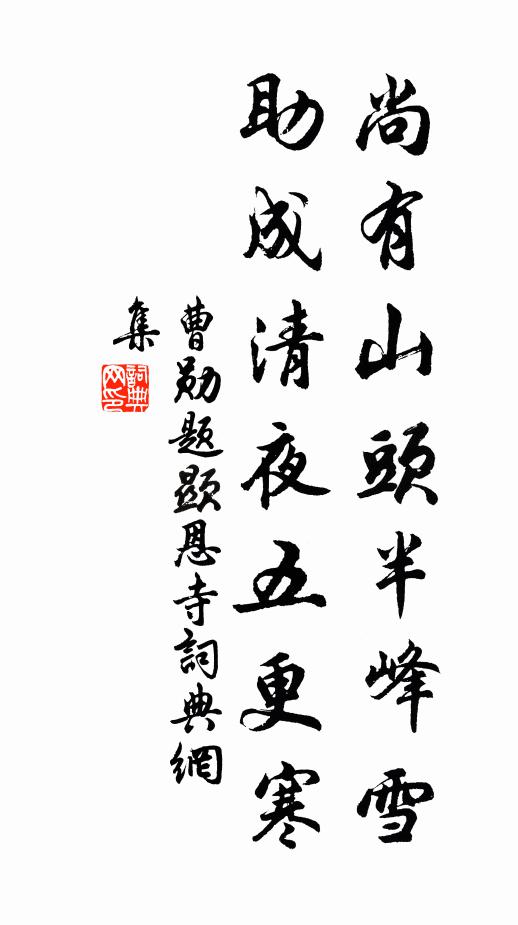 尚有山頭半峰雪
助成清夜五更寒
曹勛題顯恩寺詞典網
集
詞典網印